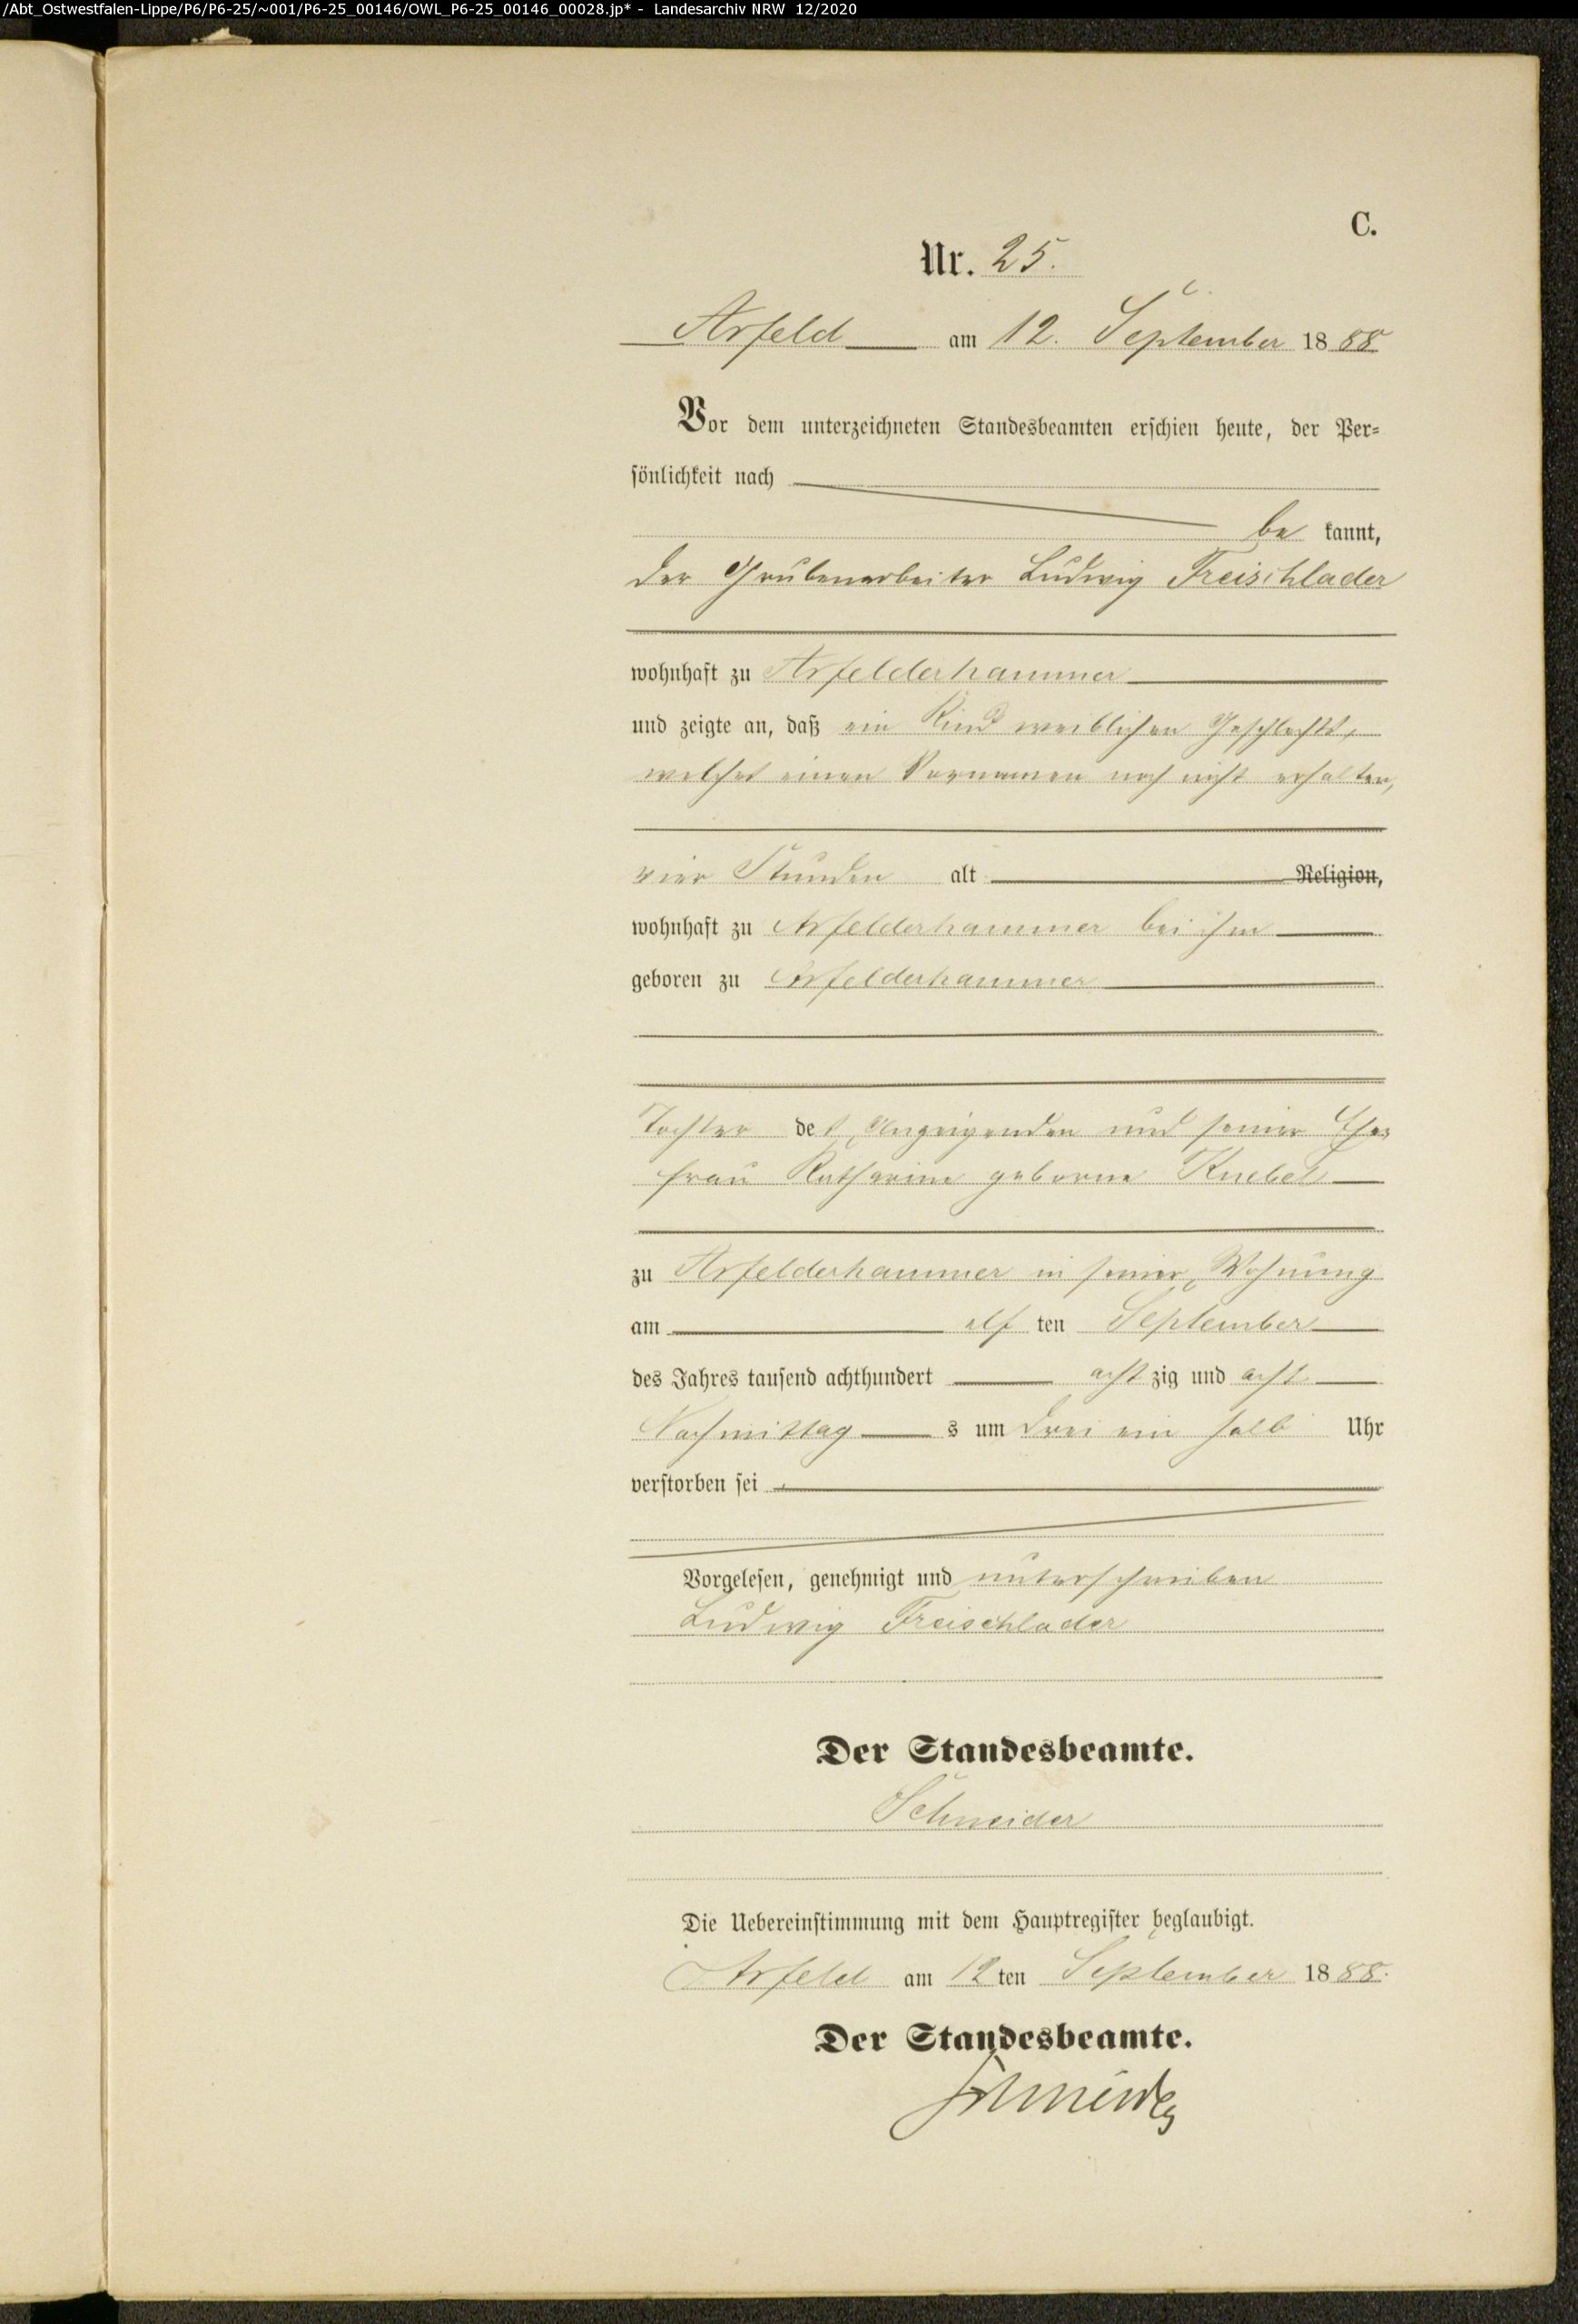 /Abt_Ostwestfalen-Lippe/P6/P6-25/~001/P6-25_00146/OWL_P6-25_00146_00028.jp* - Landesarchiv NRW 12/2020
C.
Nr. 25.
Arfeld am 12. September 1888
Vor dem unterzeichneten Standesbeamten erschien heute, der Per-
sönlichkeit nach
be kannt,
der Grubenarbeiter Ludwig Freischlader
wohnhaft zu Arfelderhammer
und zeigte an, daß ein Kind weiblichen Geschlechts,
welches einen Vornamen noch nicht erhalten,
vier Stunden alt Religion,
wohnhaft zu Arfelderhammer bei ihm
geboren zu Arfelderhammer
Tochter des Anzeigenden und seiner Ehe-
frau Katharine geborne Knebel
zu Arfelderhammer in seiner Wohnung
am elf ten September
des Jahres tausend achthundert acht zig und acht
Nachmittag s um drei ein halb Uhr
verstorben sei
Vorgelesen, genehmigt und unterschrieben
Ludwig Freischlader
Der Standesbeamte.
Schneider
Die Uebereinstimmung mit dem Hauptregister beglaubigt.
Arfeld am 12 ten September 1888.
Der Standesbeamte.
Schneider